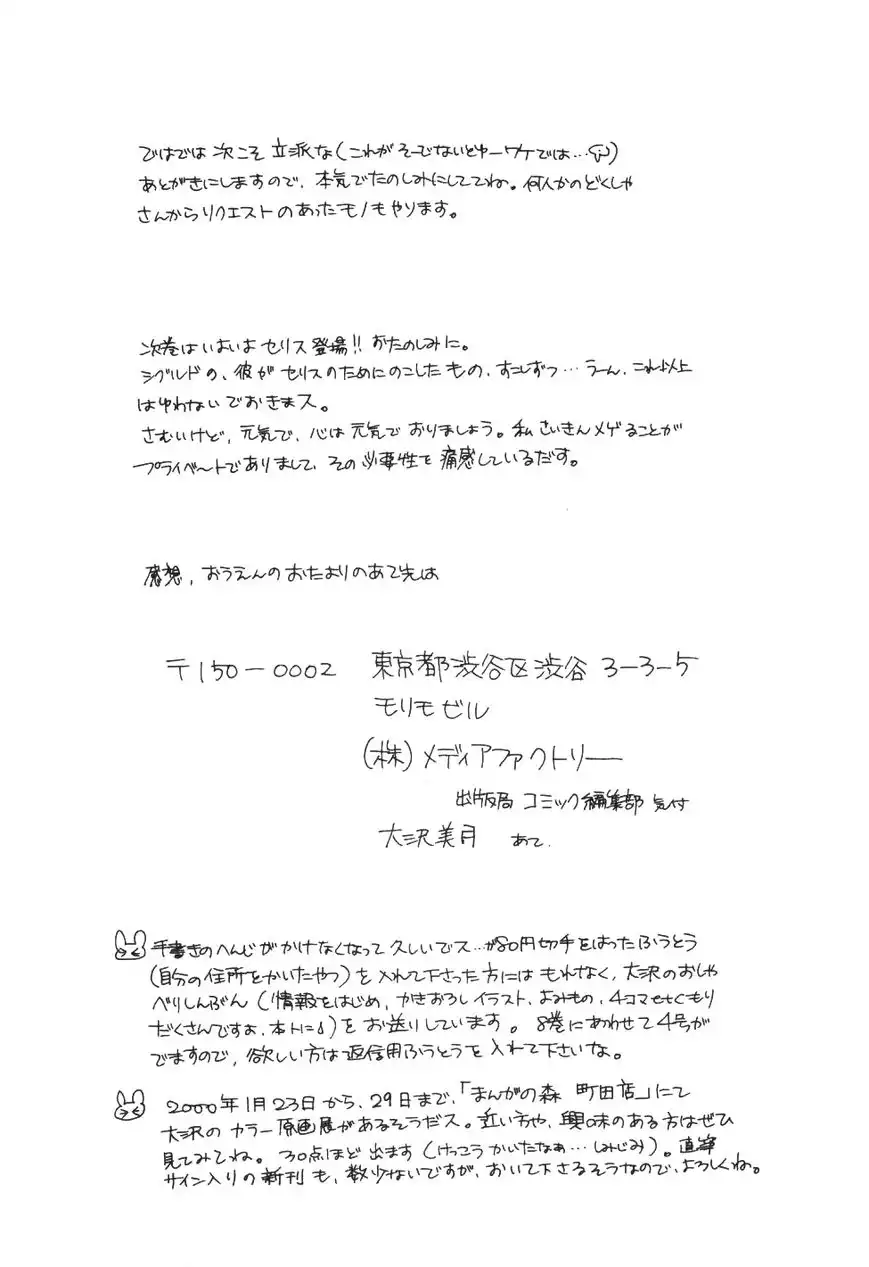 ではでは 次こそ 立派な(これが そーでないとゆーワケでは…)
あとがきにしますので、本気でたのしみにしててね。何人かのどくしゃ
さんからリクエストのあったモノもやります。
次巻はいよいよ セリス登場!! おたのしみに。
シグルドの、彼が セリスのためにのこしたもの、すこしずつ… うーん、これ以上
はゆわないでおきまス。
さむいけど、元気で、心は元気でおりましょう。私さいきんメゲることが
プライベートでありまして、その必要性を痛感しているだす。
感想、おうえんのおたよりのあて先は
〒150-0002 東京都渋谷区渋谷 3-3-5
モリモビル
(株)メディアファクトリー
出版局 コミック編集部 気付
大沢美月 あて.
手書きのへんじがかけなくなって久しいでス…が80円切手をはったふうとう
(自分の住所をかいたやつ)を入れて下さった方には もれなく、大沢のおしゃ
べりしんぶん(情報をはじめ、かきおろしイラスト、よみもの、4コマetcもり
だくさんですよ、本トに)をお送りしています。8巻にあわせて4号が
でますので、欲しい方は返信用ふうとうを入れて下さいな。
2000年1月23日から、29日まで、「まんがの森 町田店」にて
大沢の カラー原画展があるそうだス。近い方や、興味のある方はぜひ
見てみてね。30点ほど出ます(けっこうかいたなぁ…しみじみ)。直筆
サイン入りの新刊も、数少ないですが、おいて下さるそうなので、よろしくね。